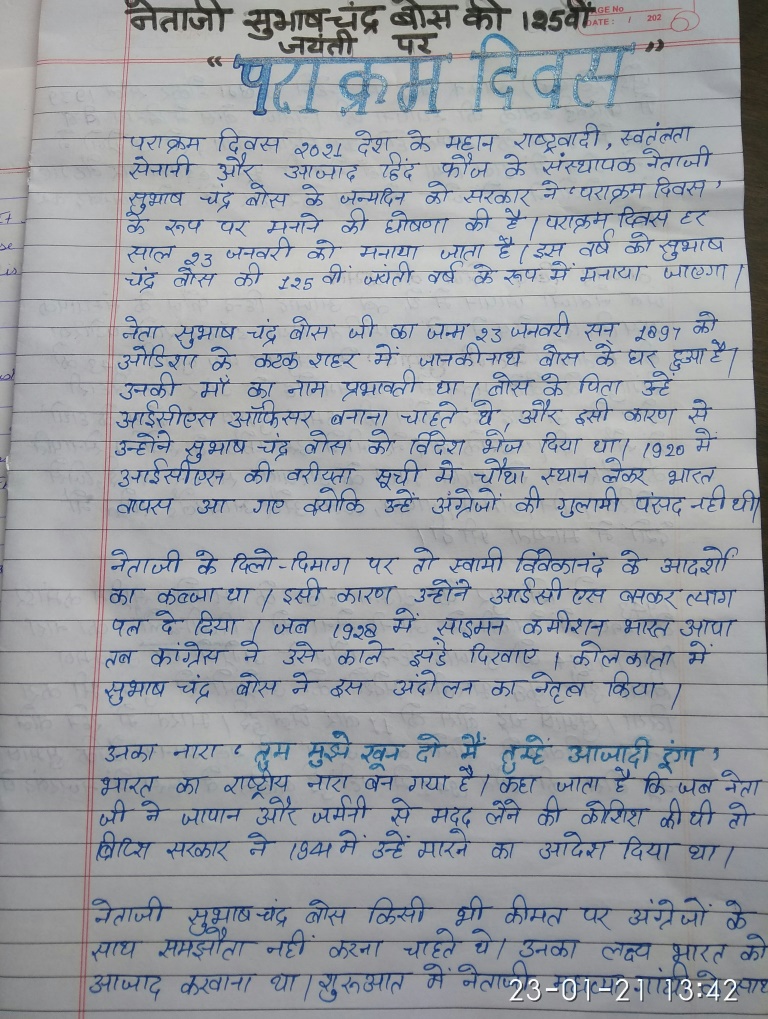 नेताजी सुभाषचंद्र बोस की 125वीं
जयंती पर
"पराक्रम दिवस"
पराक्रम दिवस 2021 देश के महान राष्ट्रवादी, स्वतंत्रता
सेनानी और आजाद हिंद फौज के संस्थापक नेताजी
सुभाष चंद्र बोस के जन्मदिन को सरकार ने 'पराक्रम दिवस'
के रूप पर मनाने की घोषणा की है। पराक्रम दिवस हर
साल 23 जनवरी को मनाया जाता है। इस वर्ष को सुभाष
चंद्र बोस की 125 वी जयंती वर्ष के रूप में मनाया जाएगा।
नेता सुभाष चंद्र बोस जी का जन्म 23 जनवरी सन् 1897 को
ओडिशा के कटक शहर में जानकीनाथ बोस के घर हुआ है।
उनकी माँ का नाम प्रभावती था। बोस के पिता उन्हें
आईसीएस ऑफिसर बनाना चाहते थे, और इसी कारण से
उन्होंने सुभाष चंद्र बोस को विदेश भेज दिया था। 1920 में
आईसीएस की वरीयता सूची में चौथा स्थान लेकर भारत
वापस आ गए क्योंकि उन्हें अंग्रेजों की गुलामी पंसद नही थी।
नेताजी के दिलो-दिमाग पर तो स्वामी विवेकानंद के आदर्शों
का कब्जा था। इसी कारण उन्होंने आईसीएस बनकर त्याग
पत्र दे दिया। जब 1928 में साइमन कमीशन भारत आया
तब कांग्रेस ने उसे काले झंडे दिखाए। कोलकाता में
सुभाष चंद्र बोस ने इस अंदोलन का नेतृत्व किया।
उनका नारा 'तुम मुझे खून दो मैं तुम्हें आजादी दूंगा'
भारत का राष्ट्रीय नारा बन गया है। कहा जाता है कि जब नेता
जी ने जापान और जर्मनी से मदद लेने की कोशिश की थी तो
ब्रिटिस सरकार ने 1941 में उन्हें मारने का आदेश दिया था।
नेताजी सुभाषचंद्र बोस किसी भी कीमत पर अंग्रेजों के
साथ समझौता नहीं करना चाहते थे। उनका लक्ष्य भारत को
आजाद करवाना था। शुरुआत में नेताजी
23-01-21 13:42